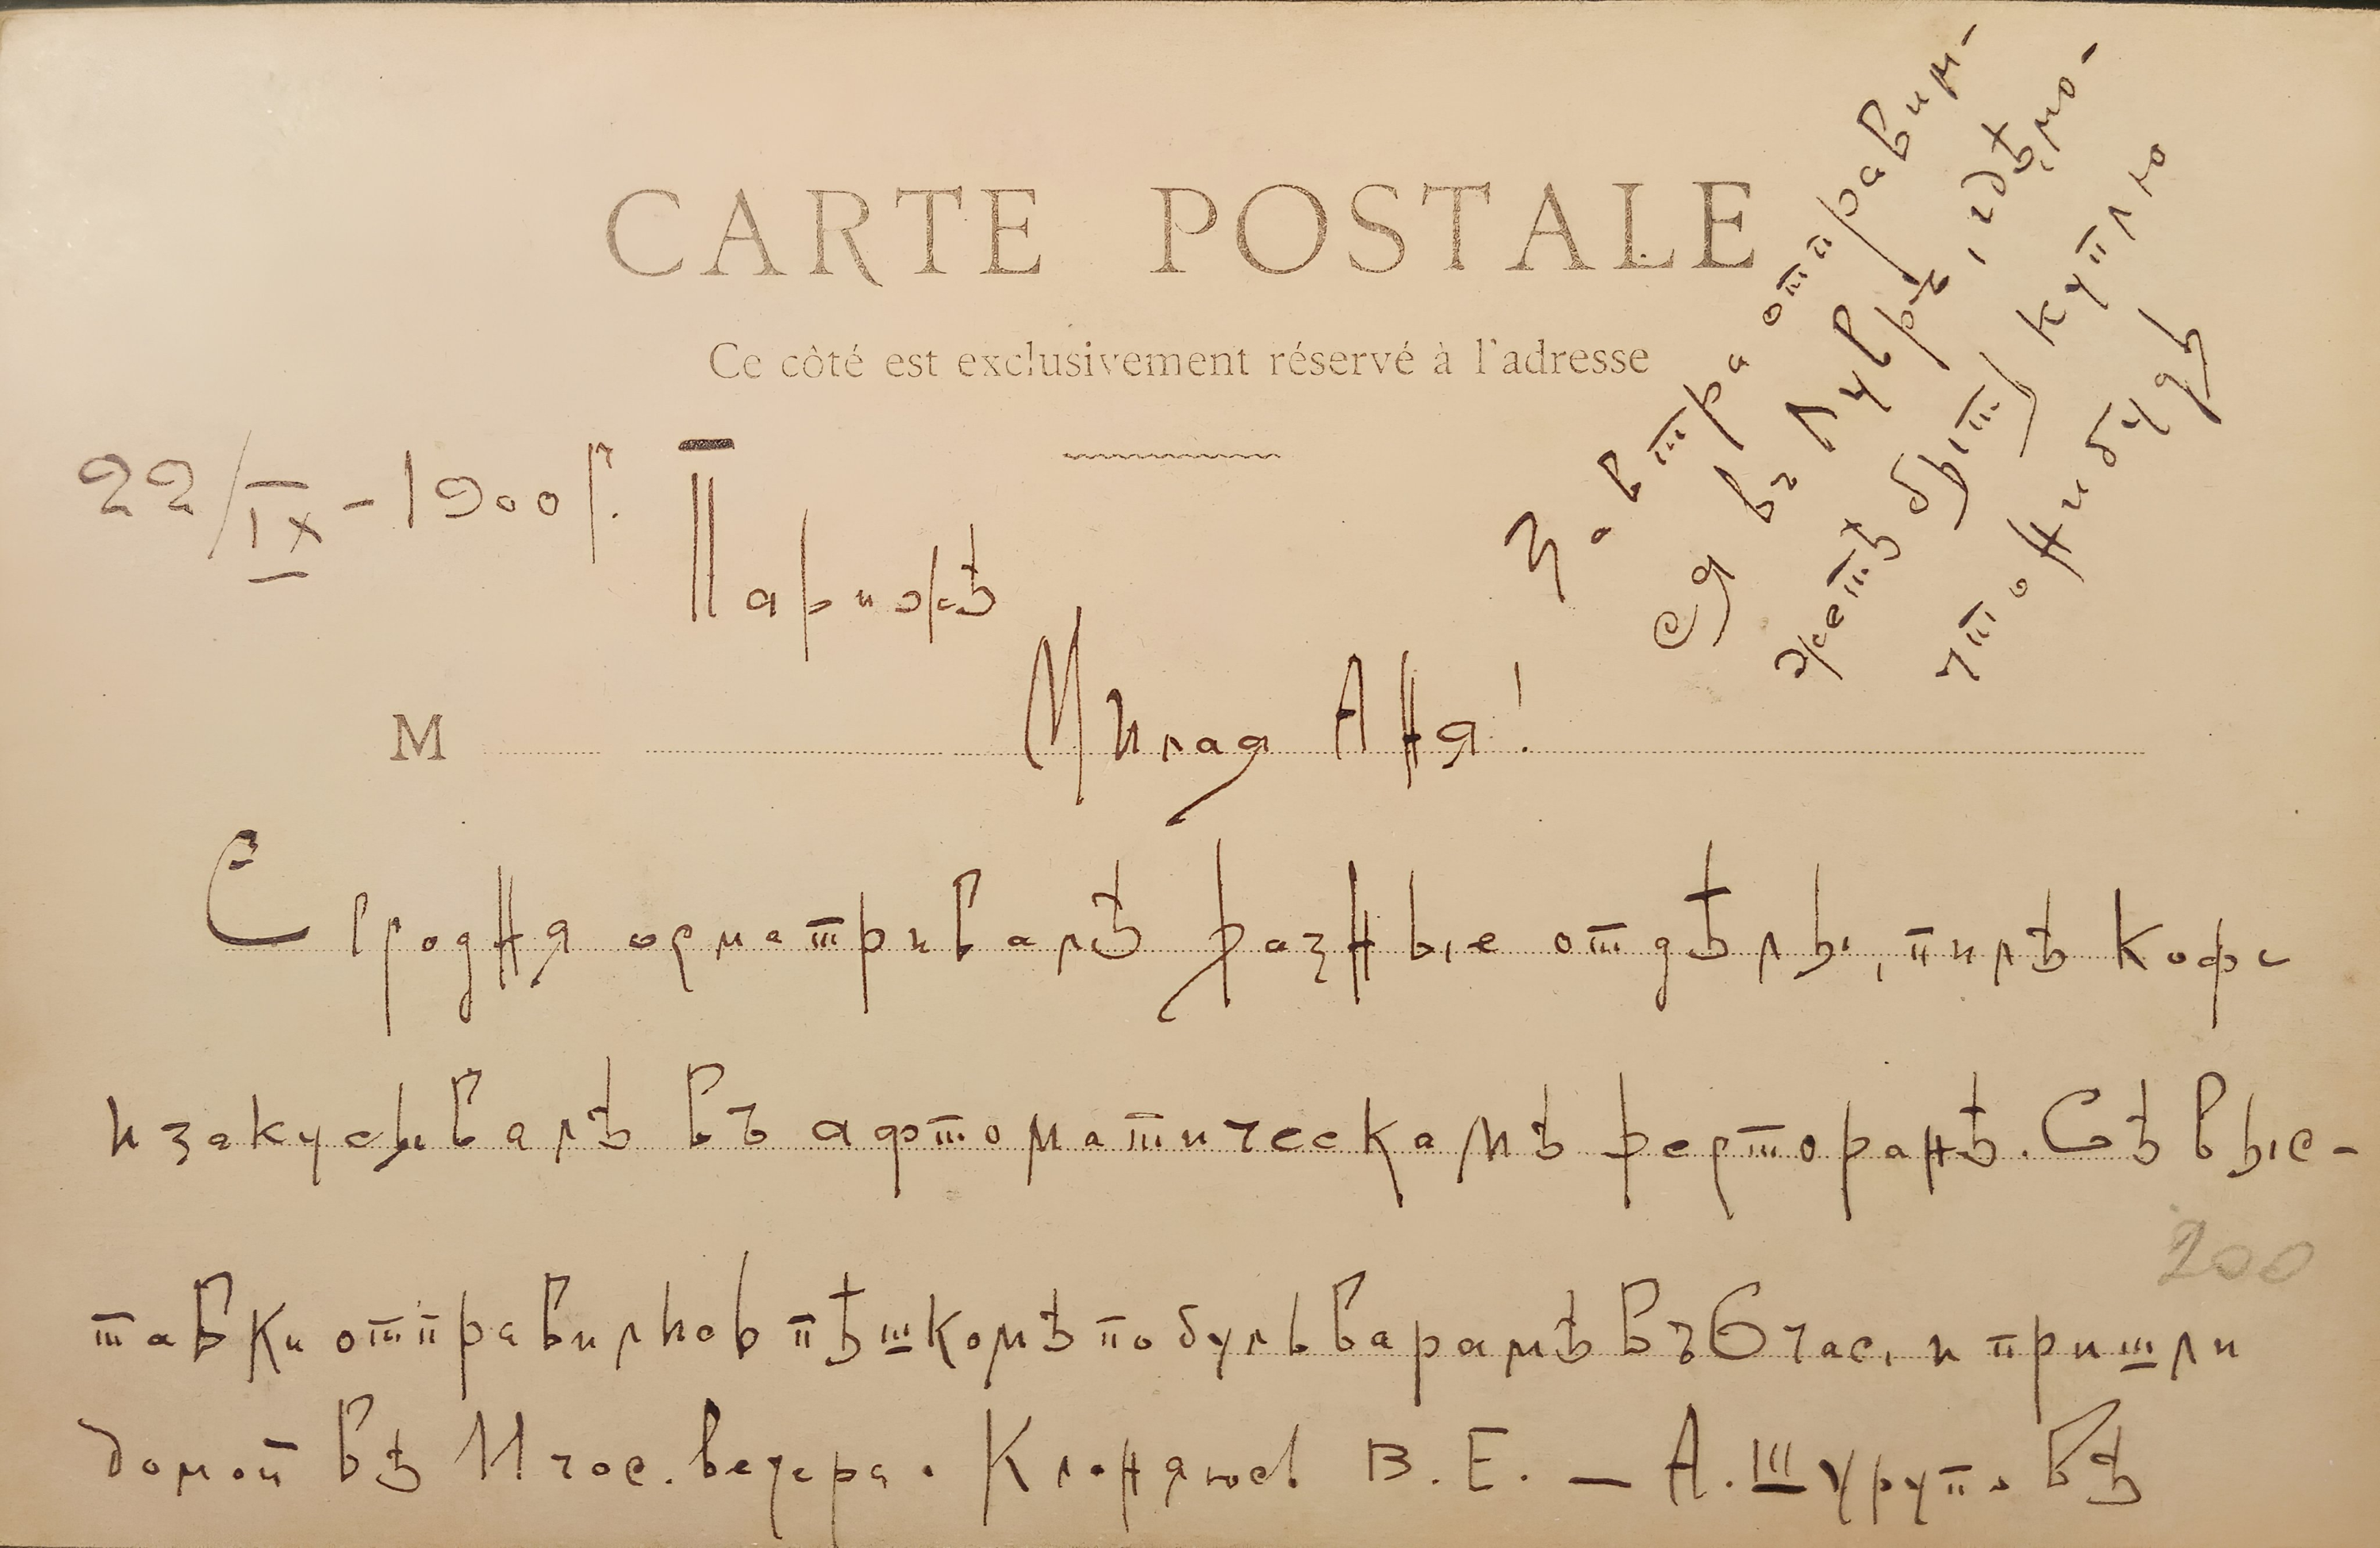 CARTE POSTALE
Ce côté est exclusivement réservé à l'adresse
22/IX - 1900 г.
Парижъ
M Милая Аня!
Сегодня осматривалъ разные отдѣлы, пилъ кофе
и закусывалъ въ афтоматическамъ ресторанъ. Съ выс-
тавки отправились пѣшкомъ по бульварамъ въ 6 час. и пришли
домой въ 11 час. вечера. Кланяюсь В. Е. — А. Шуруповъ
Завтра отправим-
ся въ Лувръ, гдѣ, мо-
жетъ быть, куплю
что нибудь
200